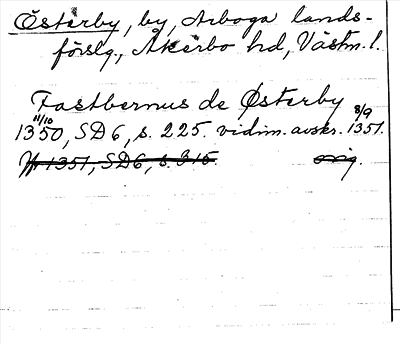 Österby, by, Arboga lands-
förslg., Åkerbo hd, Västm. l.
Fastbernus de Østerby
11/10 1350, SD 6, s. 225. vidim. avskr. 8/9 1351.
1351, SD 6, s. 315. orig.